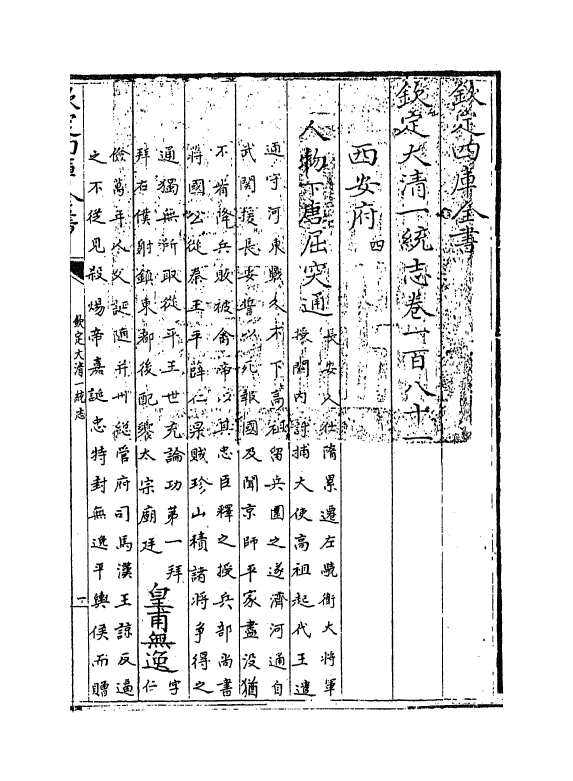 欽定四庫全書
欽定大清一統志卷一百八十一
西安府四
人物下唐屈突通
長安人仕隋累遷左驍衛大將軍
關内討捕大使高祖起代王遣
通守河東戰久不下高祖留兵圍之遂濟河通自
武關援長安誓以死報國及聞京師平家盡沒猶
不肯降兵敗被禽帝以其忠臣釋之授兵部尚書
將國公從秦王平薛仁杲賊珍山積諸將爭得之
通獨無所取從平王世充論功第一拜
拜右僕射鎮東都後配饗太宗廟廷
皇甫無逸
字
仁
儉萬年人父誕隋并州總管府司馬漢王諒反逼
之不從見殺煬帝嘉誕忠特封無逸平輿侯而贈
欽定四庫全書
欽定大清一統志
一